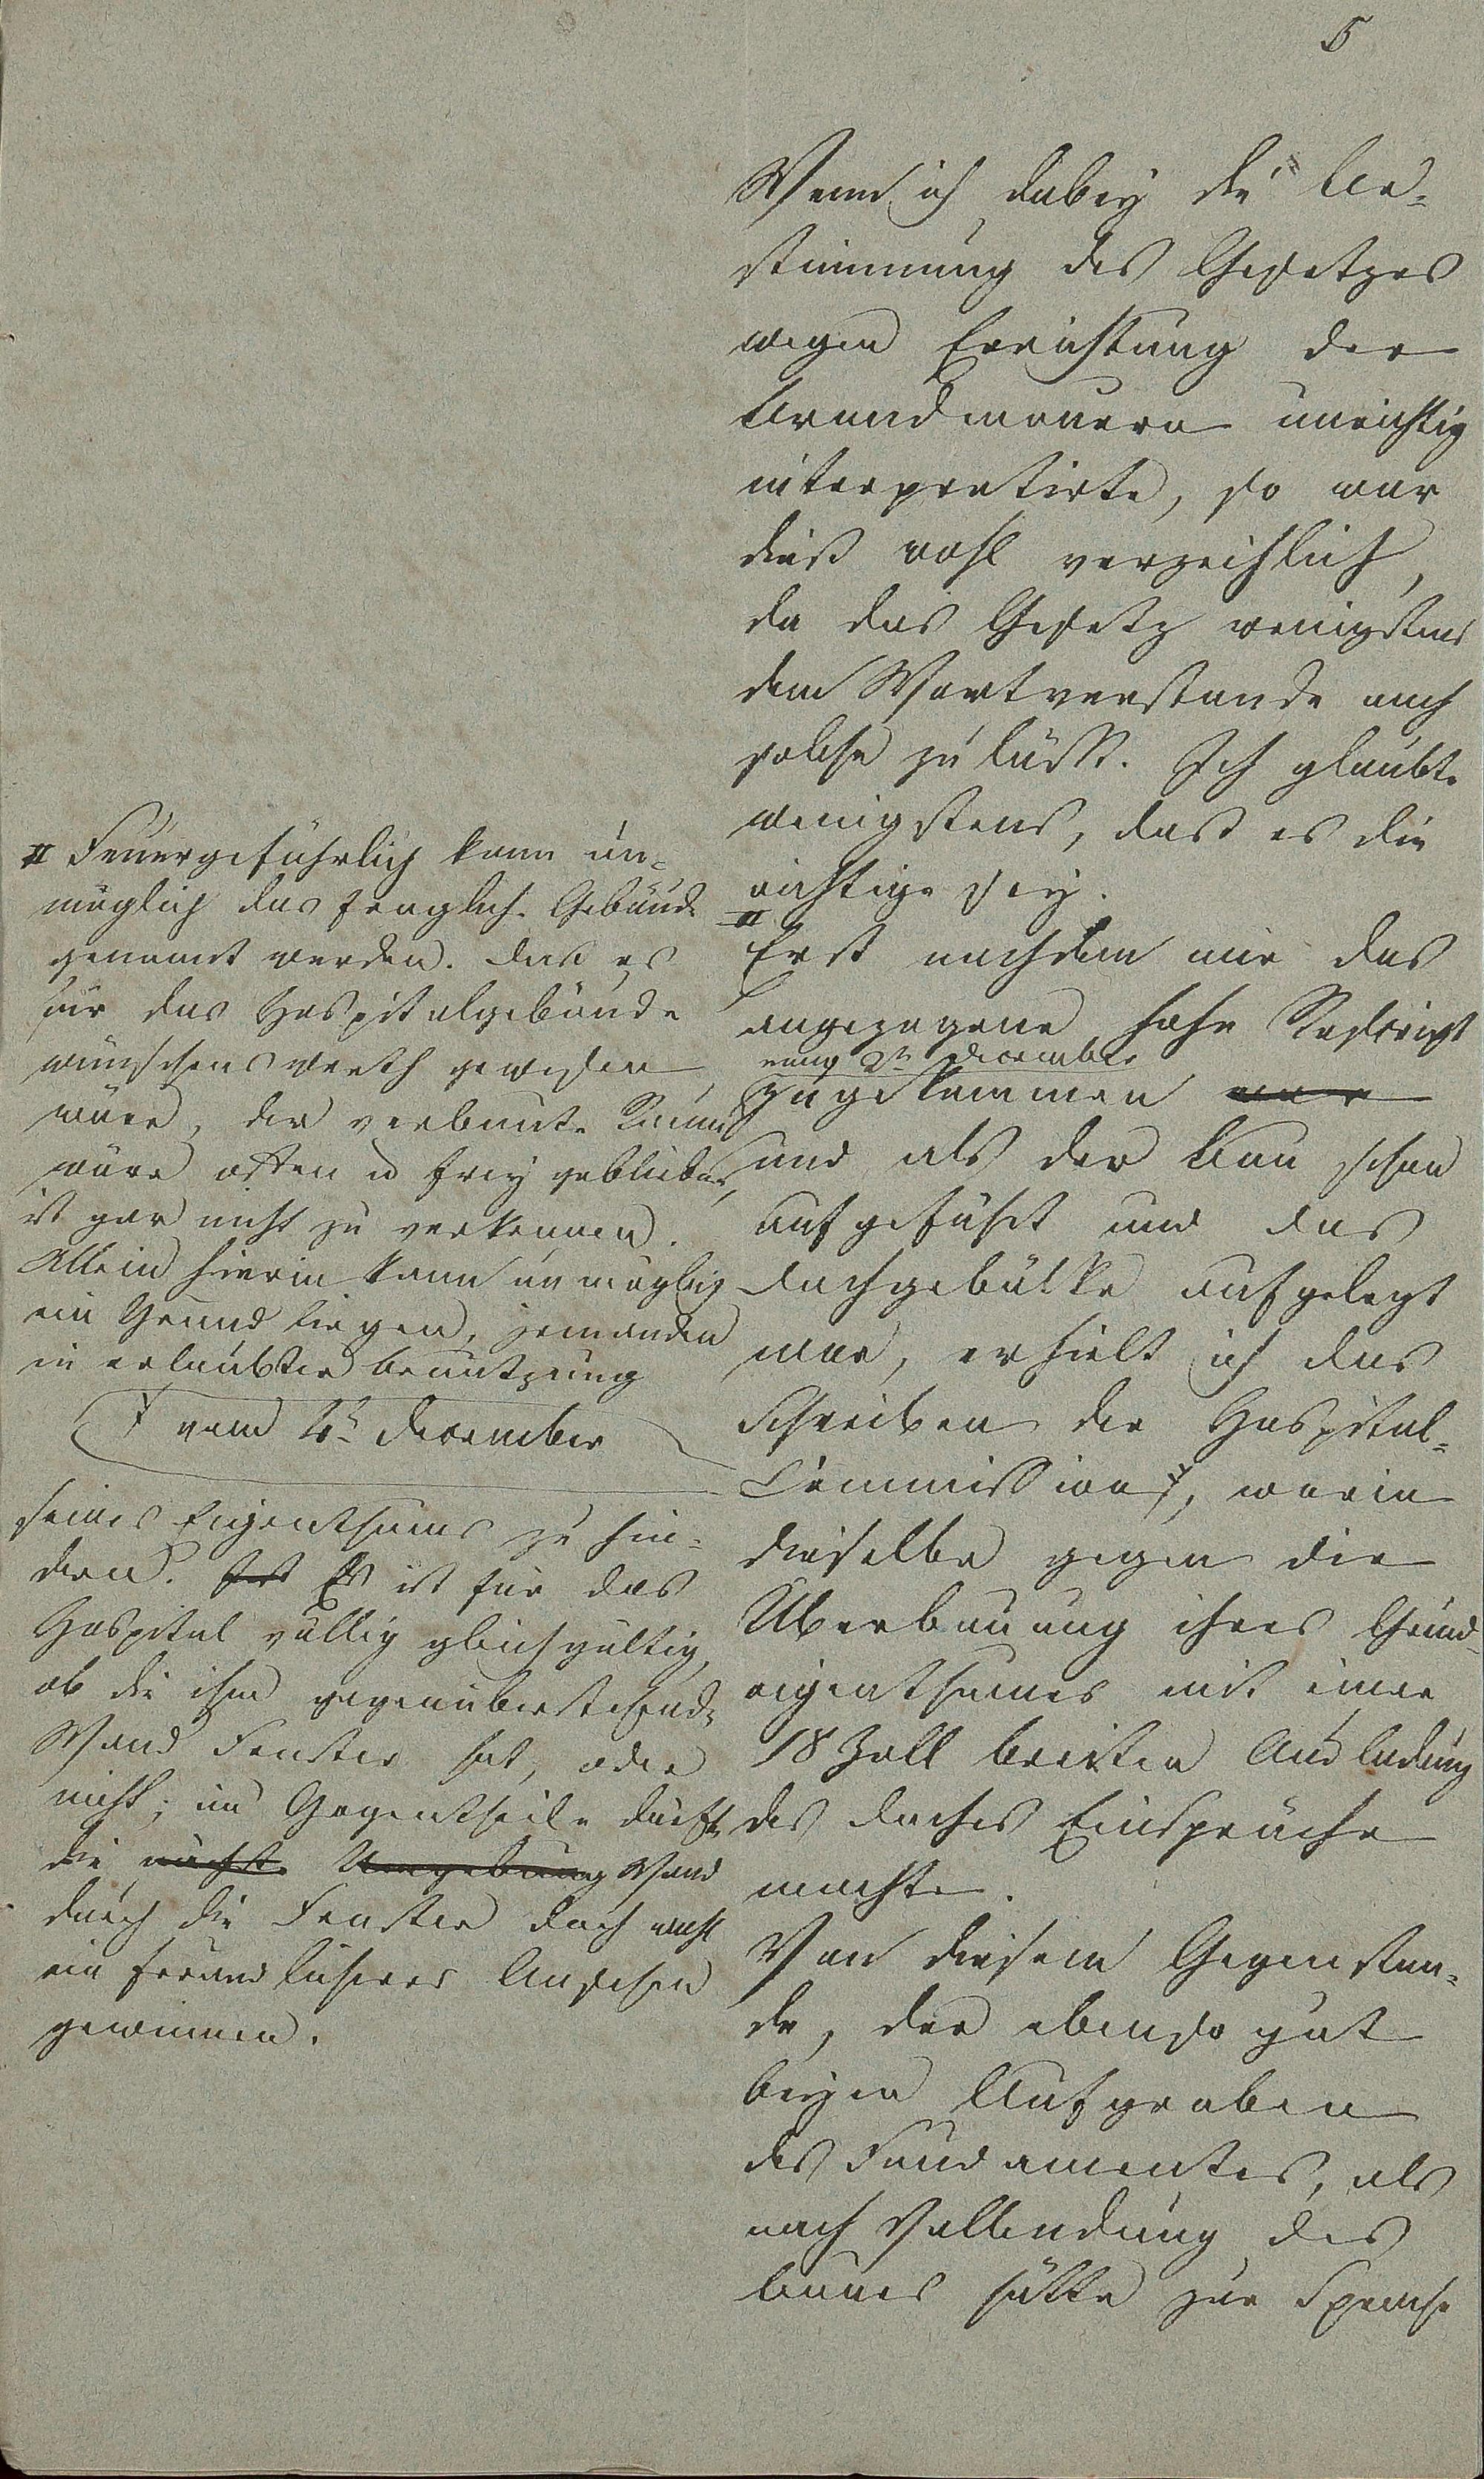 5
Wenn ich dabey die Be-
stimmung des Gesetzes
wegen Errichtung der
Brandmauern unrichtig
interpretirte, so war
dieß wohl verzeihlich,
da das Gesetz wenigstens
dem Wortverstande nach
solche zuläßt. Ich glaubte
wenigstens, daß es die
richtige sey.
II
Erst nachdem mir das
angezogene hohe Rescript
vom 2ten December
zugekommen war
und als der Bau schon
aufgeführt und das
Dachgebälke aufgelegt
war, erhielt ich das
Schreiben der Hospital-
Commission †, worin
dieselbe gegen die
Überbauung ihres Grund-
eigenthumes mit einer
18 Zoll breiten Ausladung
des Daches Einsprüche
machte.
Von diesem Gegenstan-
de, der ebenso gut
beym Aufgraben
des Fundamentes, als
nach Vollendung des
Baues hätte zur Sprache
II Feuergefährlich kann un-
möglich das fragliche Gebäude
genannt werden. Daß es
für das Hospitalgebäude
wünschenswerth gewesen
wäre, der verbaute Raum
wäre offen u frey geblieben,
ist gar nicht zu verkennen.
Allein hierin kann unmöglich
ein Grund liegen, jemanden
in erlaubter Benutzung
† vom 4t December
seines Eigenthums zu hin-
dern. Es ist für das
Hospital völlig gleichgültig,
ob die ihm gegenüberstehende
Wand Fenster hat, oder
nicht; im Gegentheile dürfte
die nächste Umgebung Wand
durch die Fenster doch wohl
ein freundlicheres Ansehen
gewinnen.